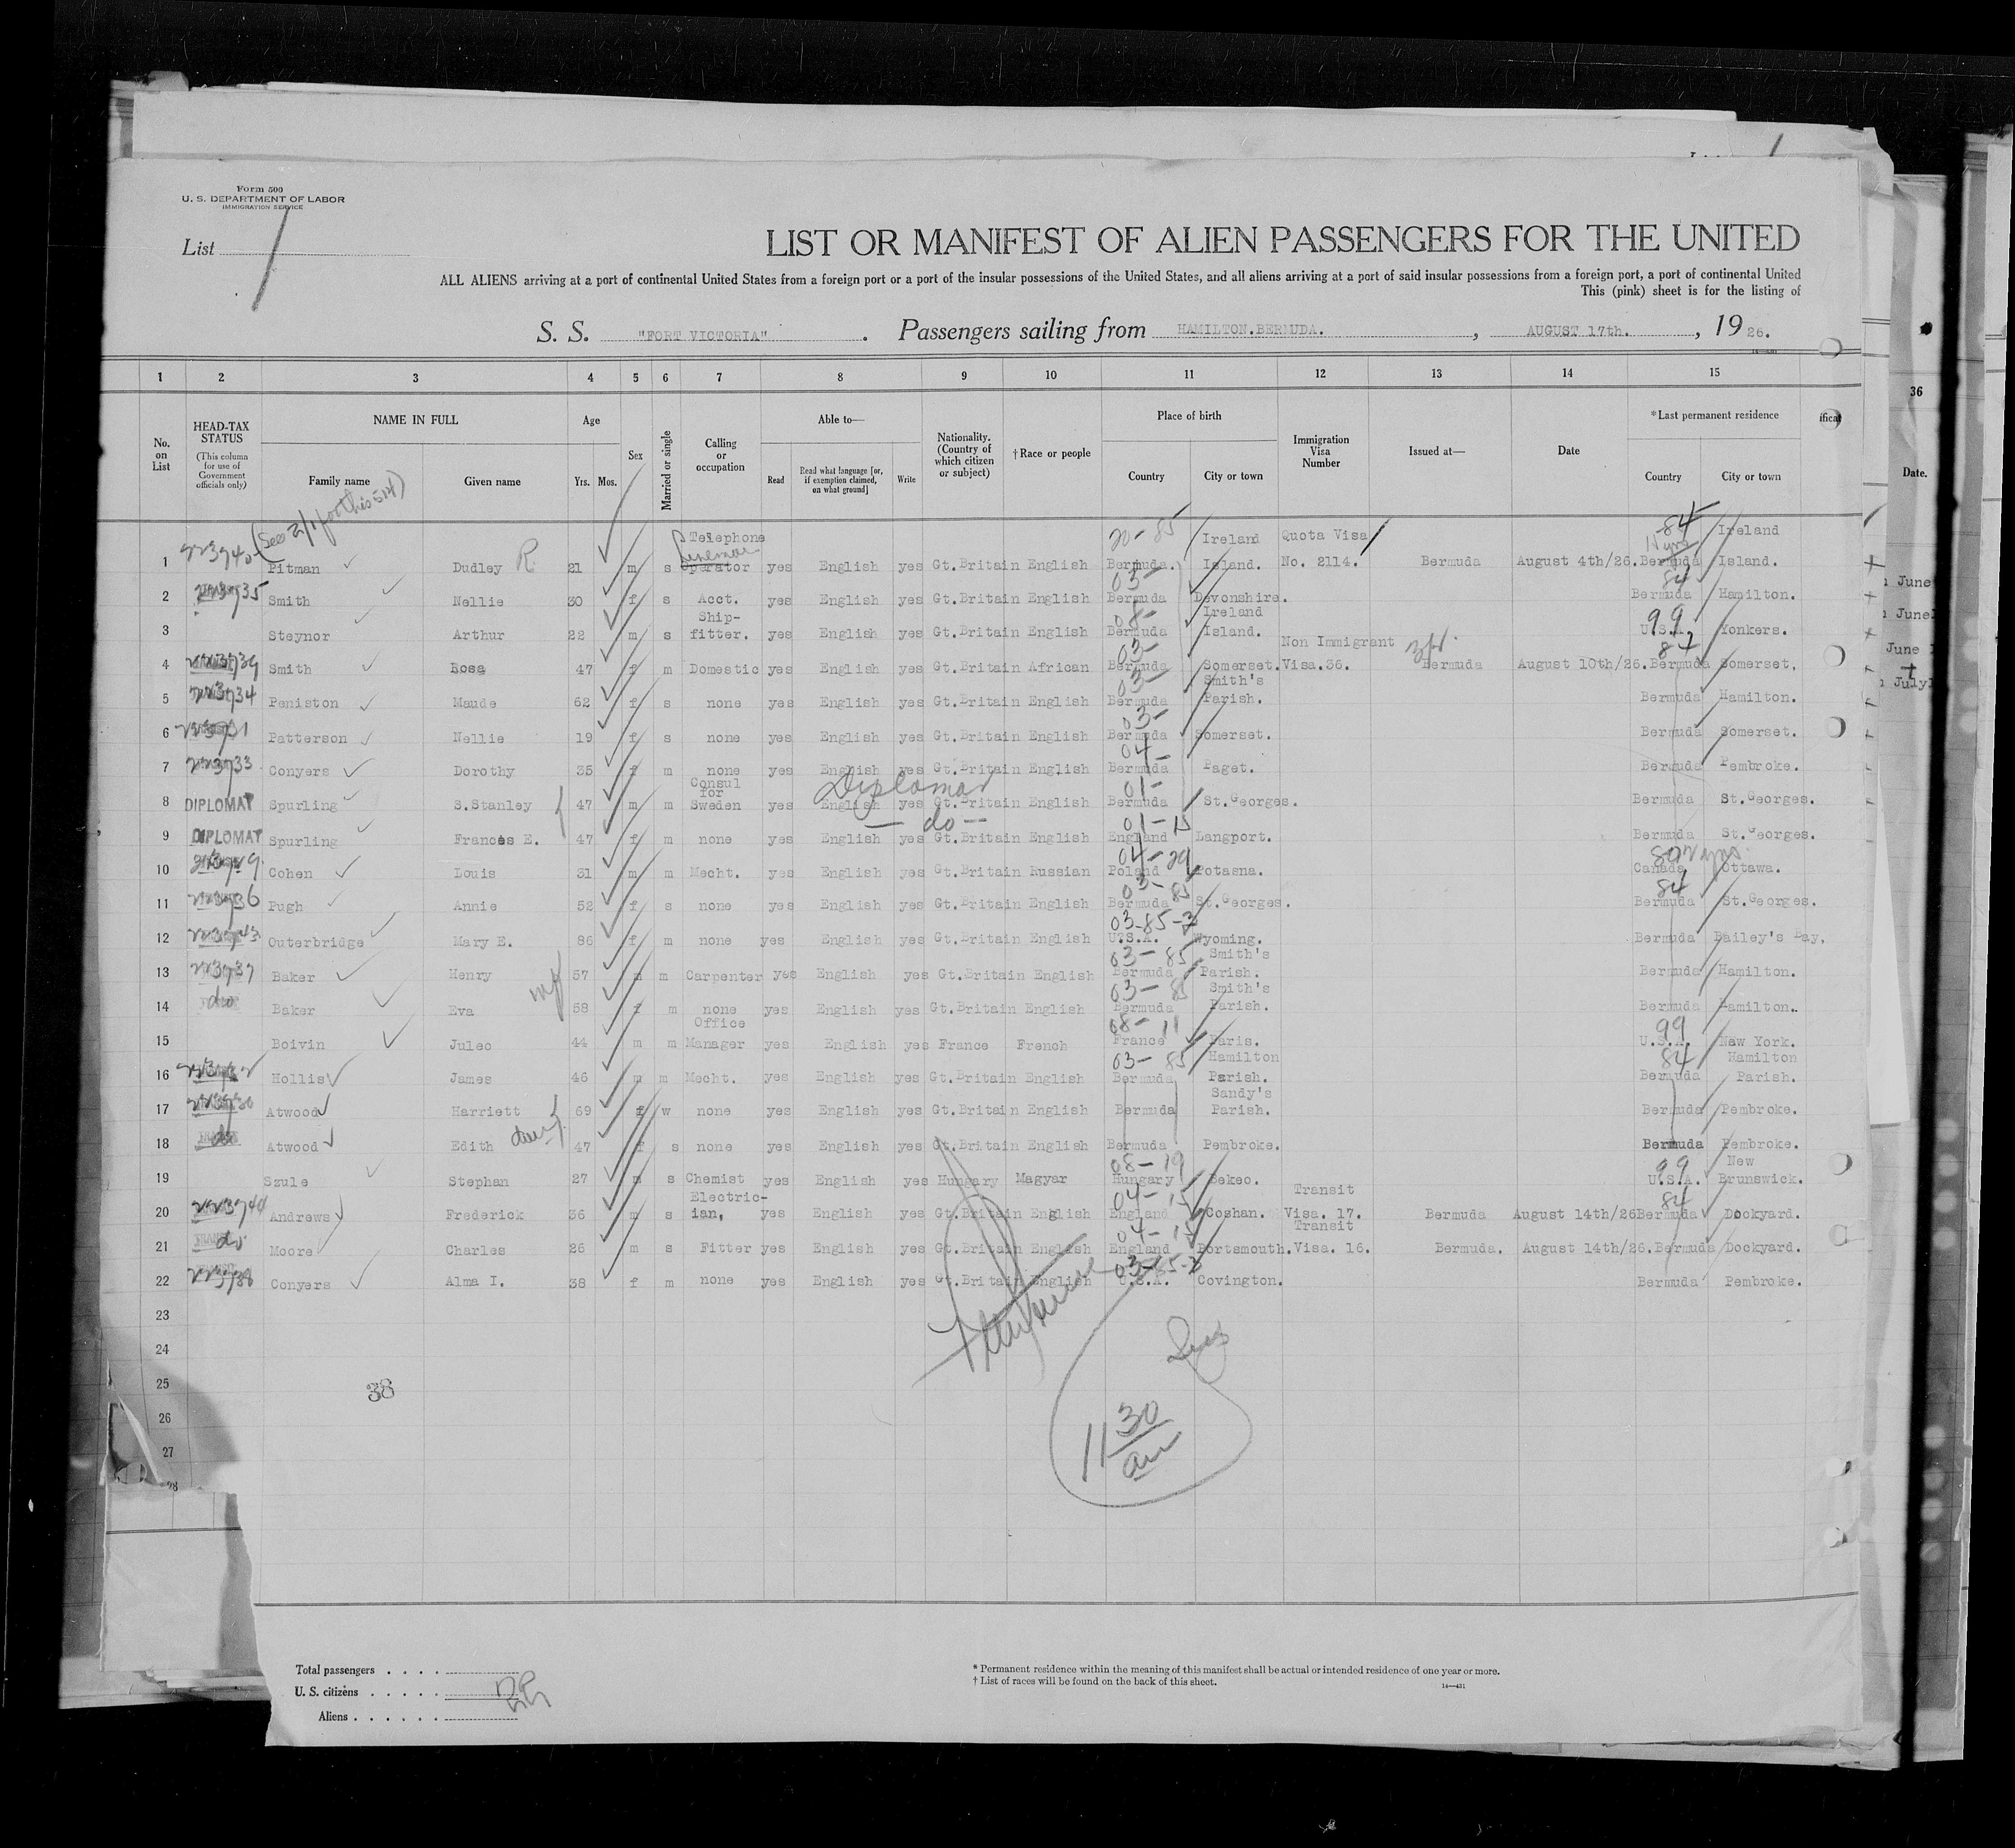 Form 500
U. S. DEPARTMENT OF LABOR
IMMIGRATION SERVICE
List 1
LIST OR MANIFEST OF ALIEN PASSENGERS FOR THE UNITED
ALL ALIENS arriving at a port of continental United States from a foreign port or a port of the insular possessions of the United States, and all aliens arriving at a port of said insular possessions from a foreign port, a port of continental United
This (pink) sheet is for the listing of
S. S. "FORT VICTORIA". Passengers sailing from HAMILTON.BERMUDA. , AUGUST 17th. , 1926.
1 2 3 4 5 6 7 8 9 10 11 12 13 14 15
36
No. on List
HEAD-TAX STATUS (This column for use of Government officials only)
NAME IN FULL Family name Given name
Age Yrs. Mos.
Sex
Married or single
Calling or occupation
Able to— Read Read what language [or, if exemption claimed, on what ground] Write
Nationality. (Country of which citizen or subject)
†Race or people
Place of birth Country City or town
Immigration Visa Number
Issued at—
Date
*Last permanent residence Country City or town
Date.
1 Pitman Dudley R. 21 m s Telephone Operator yes English yes Gt.Britain English 20-85 Bermuda. Ireland Island. Quota Visa No. 2114. Bermuda August 4th/26. 84 Bermuda Ireland Island.
2 Smith Nellie 30 f s Acct. yes English yes Gt.Britain English 03- Bermuda Devonshire. 84 Bermuda Hamilton.
3 Steynor Arthur 22 m s Ship-fitter. yes English yes Gt.Britain English 08- Bermuda Ireland Island. 99 U.S.A. Yonkers.
4 Smith Rosa 47 f m Domestic yes English yes Gt.Britain African 03- Bermuda Somerset. Non Immigrant Visa.36. Bermuda August 10th/26. 84 Bermuda Somerset.
5 Peniston Maude 62 f s none yes English yes Gt.Britain English 03- Bermuda Smith's Parish. Bermuda Hamilton.
6 Patterson Nellie 19 f s none yes English yes Gt.Britain English 03- Bermuda Somerset. Bermuda Somerset.
7 Conyers Dorothy 35 f m none yes English yes Gt.Britain English 04- Bermuda Paget. Bermuda Pembroke.
8 DIPLOMAT Spurling S.Stanley 47 m m Consul for Sweden yes English yes Gt.Britain English Diplomat 01- Bermuda St.Georges. Bermuda St.Georges.
9 DIPLOMAT Spurling Frances E. 47 f m none yes English yes Gt.Britain English — do — 01-15 England Langport. Bermuda St.Georges.
10 Cohen Louis 31 m m Mecht. yes English yes Gt.Britain Russian 04-29 Poland Potasna. Canada Ottawa.
11 Pugh Annie 52 f s none yes English yes Gt.Britain English 03-85 Bermuda St.Georges. 84 Bermuda St.Georges.
12 Outerbridge Mary E. 86 f m none yes English yes Gt.Britain English 03-85-3 U.S.A. Wyoming. Bermuda Bailey's Bay.
13 Baker Henry 57 m m Carpenter yes English yes Gt.Britain English 03-85 Bermuda Smith's Parish. Bermuda Hamilton.
14 do Baker Eva 58 f m none yes English yes Gt.Britain English 03-85 Bermuda Smith's Parish. Bermuda Hamilton.
15 Boivin Juleo 44 m m Office Manager yes English yes France French 08-11 France Paris. 99 U.S.A. New York.
16 Hollis James 46 m m Mecht. yes English yes Gt.Britain English 03-85 Bermuda Hamilton Parish. 84 Bermuda Hamilton Parish.
17 Atwood Harriett 69 f w none yes English yes Gt.Britain English Bermuda Sandy's Parish. Bermuda Pembroke.
18 do Atwood Edith dau 47 f s none yes English yes Gt.Britain English Bermuda Pembroke. Bermuda Pembroke.
19 Szule Stephan 27 m s Chemist yes English yes Hungary Magyar 08-19 Hungary Bekeo. 99 U.S.A. New Brunswick.
20 Andrews Frederick 36 m s Electric-ian, yes English yes Gt.Britain English 04-15 England Coshan. Transit Visa. 17. Bermuda August 14th/26 84 Bermuda Dockyard.
21 do Moore Charles 26 m s Fitter yes English yes Gt.Britain English 04-15 England Portsmouth. Transit Visa. 16. Bermuda. August 14th/26. Bermuda Dockyard.
22 Conyers Alma I. 38 f m none yes English yes Gt.Britain English 03-85-3 U.S.A. Covington. Bermuda Pembroke.
23
24
25 38
26
27
28
11 30 am
Total passengers . . . .
U. S. citizens . . . . .
Aliens . . . . . . 22
* Permanent residence within the meaning of this manifest shall be actual or intended residence of one year or more.
† List of races will be found on the back of this sheet.
14—431